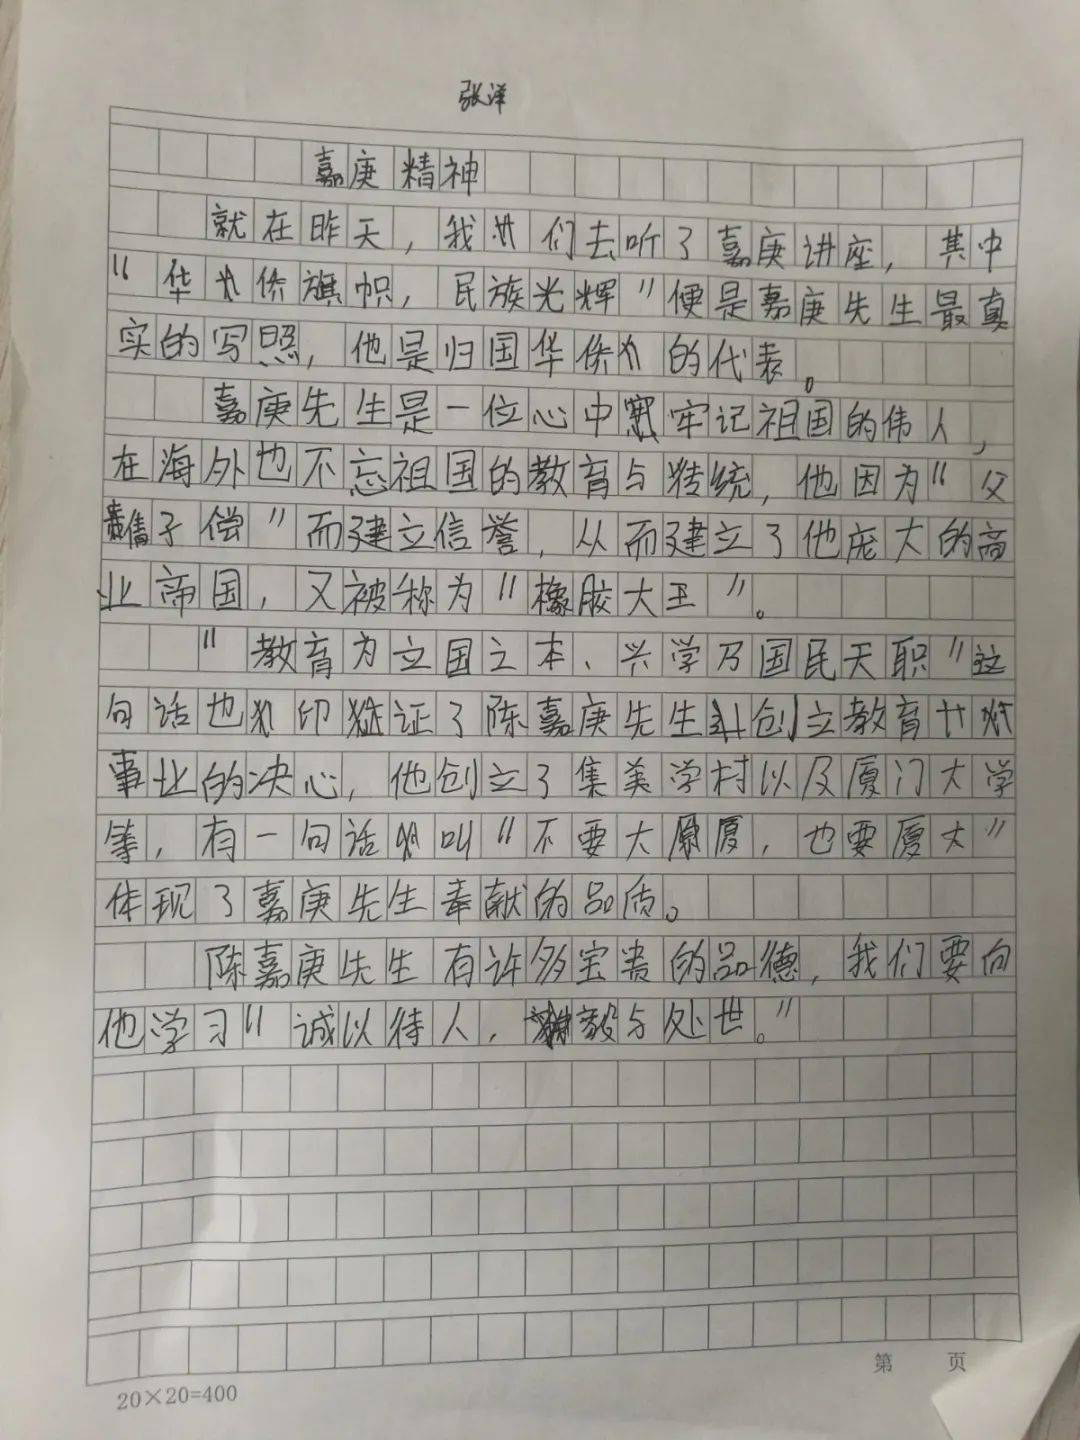 张洋
嘉庚精神
就在昨天，我们去听了嘉庚讲座，其中
“华侨旗帜，民族光辉”便是嘉庚先生最真
实的写照，他是归国华侨的代表。
嘉庚先生是一位心中牢记祖国的伟人，
在海外也不忘祖国的教育与传统，他因为“父
债子偿”而建立信誉，从而建立了他庞大的商
业帝国，又被称为“橡胶大王”。
“教育为立国之本、兴学乃国民天职”这
句话也印证了陈嘉庚先生创立教育
事业的决心，他创立了集美学村以及厦门大学
等，有一句话叫“不要大厦，也要厦大”
体现了嘉庚先生奉献的品质。
陈嘉庚先生有许多宝贵的品德，我们要向
他学习“诚以待人，毅与处世。”
第 页
20×20=400